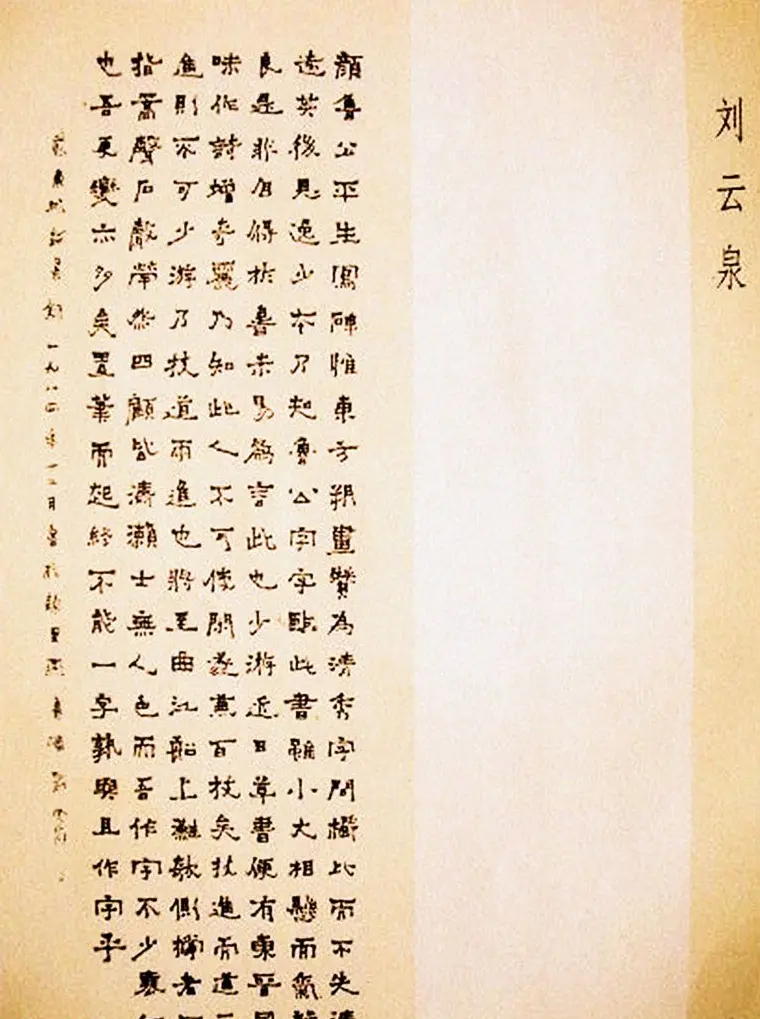 刘云泉
顏魯公平生寫碑惟東方朔畫贊為清秀字間櫛比而不失清
遠其後見逸少本乃知魯公字字臨此書雖小大相懸而氣韻
良是非自得於書未易為言此也少游近日草書便有東晉風
味作詩增奇麗乃知此人不可使閑遂兼百技矣技進而道不
進則不可少游乃技道兩進也將至曲江船上灘欹側撐者百
指篙聲石聲犖然四顧皆濤瀨士無人色而吾作字不少衰何
也吾更變亦多矣置筆而起終不能一字孰與且作字乎
蘇東坡論書 一九八四年十二月書於